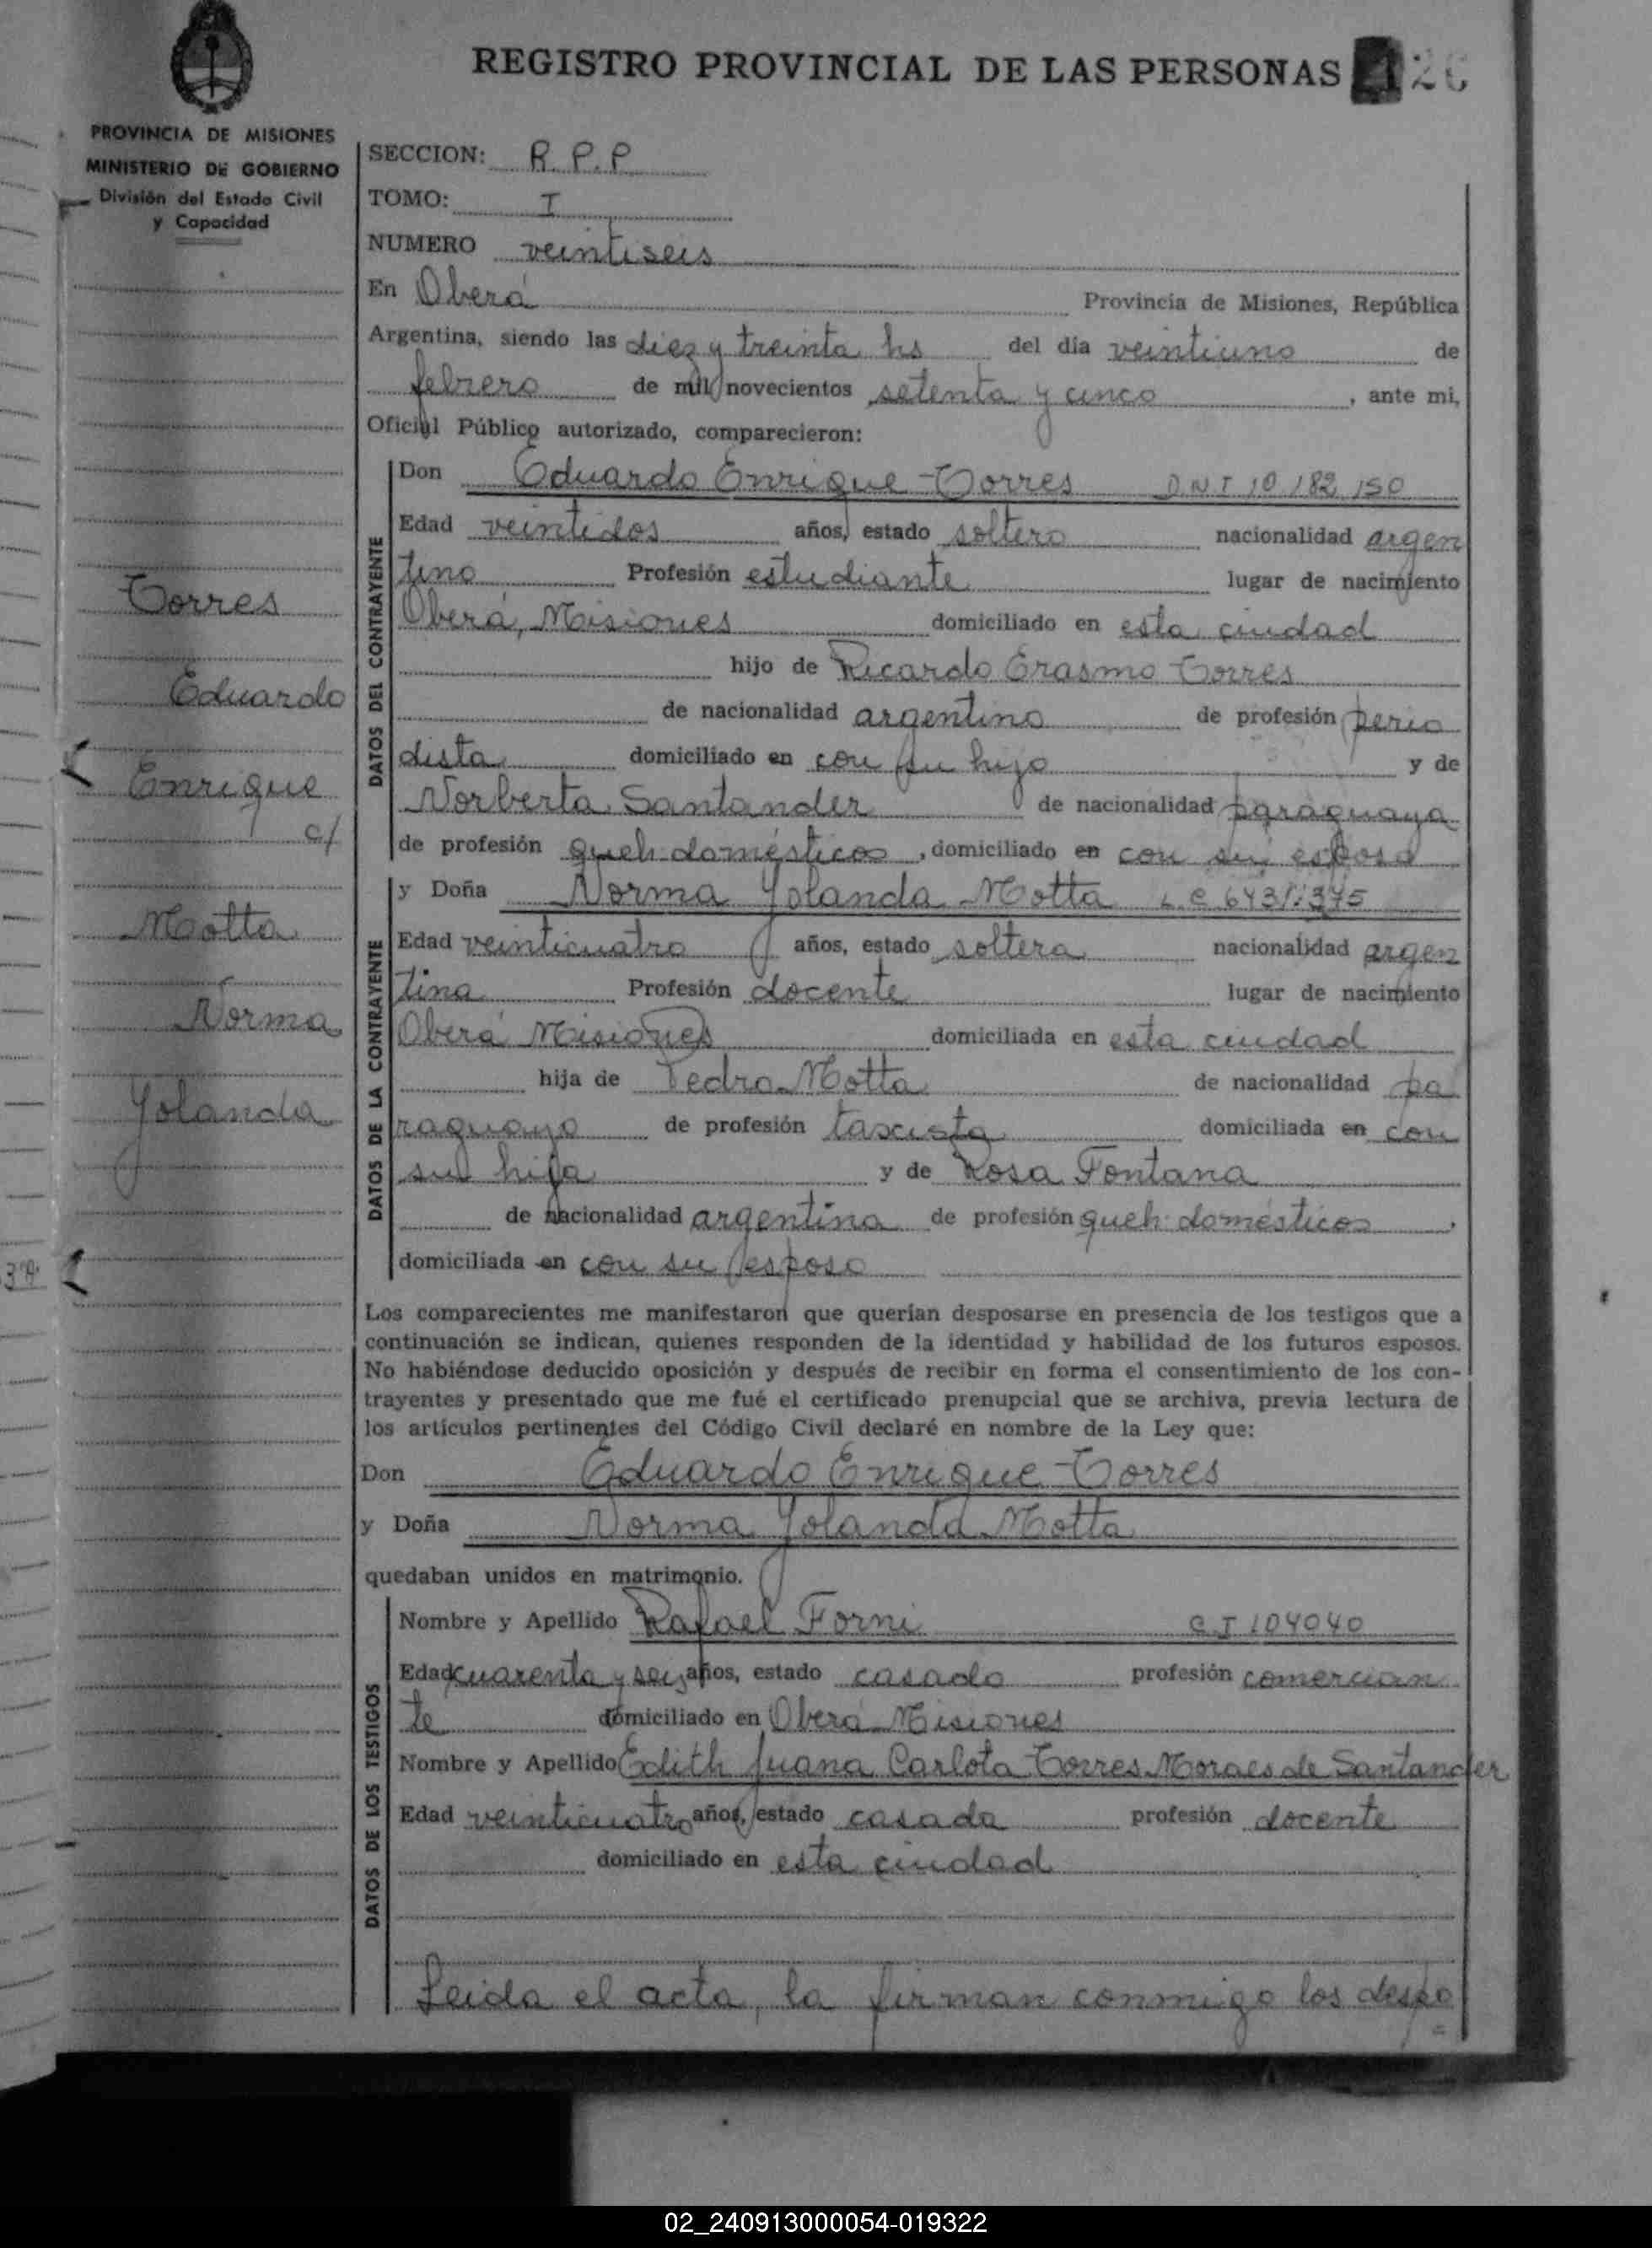 REGISTRO PROVINCIAL DE LAS PERSONAS 26
PROVINCIA DE MISIONES
MINISTERIO DE GOBIERNO
División del Estado Civil
y Capacidad
SECCION: R.P.P
TOMO: I
NUMERO veintiseis
En Oberá Provincia de Misiones, República
Argentina, siendo las diez y treinta hs del día veintiuno de
febrero de mil novecientos setenta y cinco, ante mi,
Oficial Público autorizado, comparecieron:
DATOS DEL CONTRAYENTE
Don Eduardo Enrique Torres D.N.I 10 182 150
Edad veintidos años, estado soltero nacionalidad argen
tino Profesión estudiante lugar de nacimiento
Oberá, Misiones domiciliado en esta ciudad
hijo de Ricardo Erasmo Torres
de nacionalidad argentino de profesión perio
dista domiciliado en con su hijo y de
Norberta Santander de nacionalidad paraguaya
de profesión queh domésticos, domiciliado en con su esposo
Torres
Eduardo
Enrique
c/
Motta
Norma
Yolanda
DATOS DE LA CONTRAYENTE
y Doña Norma Yolanda Motta L.C 6431.375
Edad veinticuatro años, estado soltera nacionalidad argen
tina Profesión docente lugar de nacimiento
Oberá Misiones domiciliada en esta ciudad
hija de Pedro Motta de nacionalidad pa
raguayo de profesión taxista domiciliada en con
su hija y de Rosa Fontana
de nacionalidad argentina de profesión queh domésticos,
domiciliada en con su esposo
Los comparecientes me manifestaron que querían desposarse en presencia de los testigos que a
continuación se indican, quienes responden de la identidad y habilidad de los futuros esposos.
No habiéndose deducido oposición y después de recibir en forma el consentimiento de los con-
trayentes y presentado que me fué el certificado prenupcial que se archiva, previa lectura de
los artículos pertinentes del Código Civil declaré en nombre de la Ley que:
Don Eduardo Enrique Torres
y Doña Norma Yolanda Motta
quedaban unidos en matrimonio.
DATOS DE LOS TESTIGOS
Nombre y Apellido Rafael Forni C I 104040
Edad cuarenta y seis años, estado casado profesión comercian
te domiciliado en Oberá Misiones
Nombre y Apellido Edith Juana Carlota Torres Moraes de Santander
Edad veinticuatro años, estado casada profesión docente
domiciliado en esta ciudad
Leida el acta, la firman conmigo los despo
02_240913000054-019322